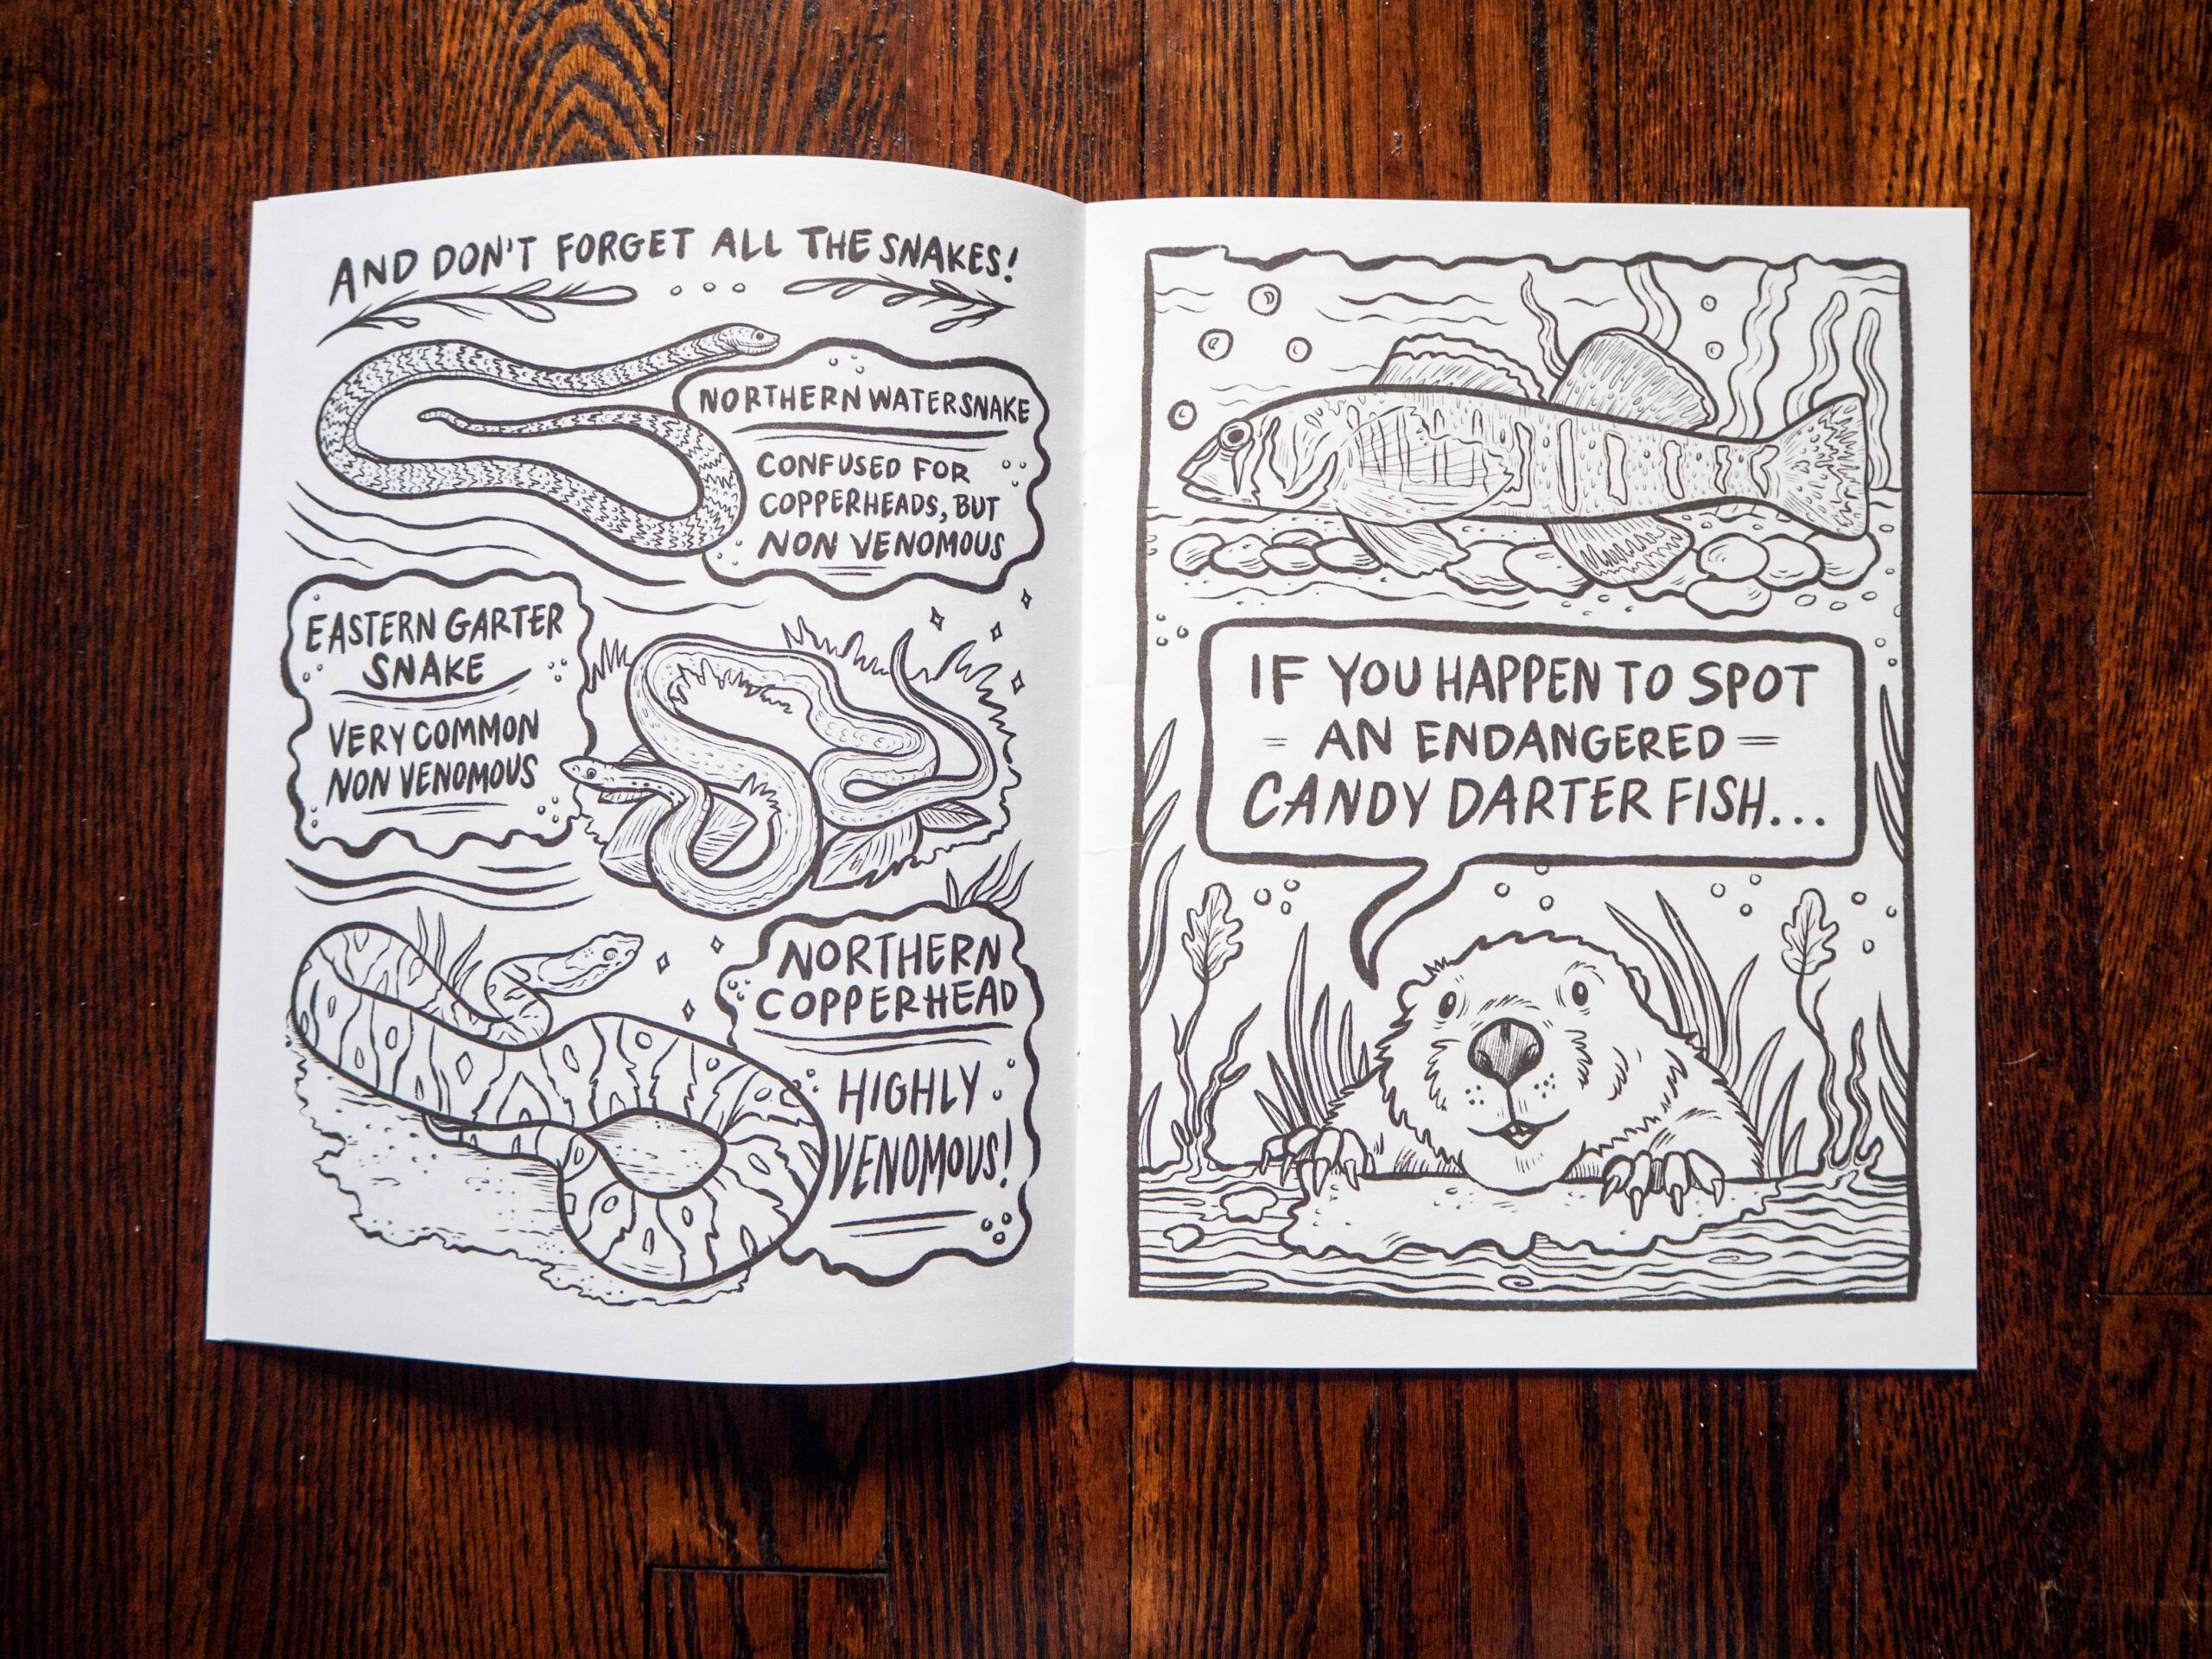 AND DON'T FORGET ALL THE SNAKES!
NORTHERN WATERSNAKE
CONFUSED FOR
COPPERHEADS, BUT
NON VENOMOUS
EASTERN GARTER
SNAKE
VERY COMMON
NON VENOMOUS
NORTHERN
COPPERHEAD
HIGHLY
VENOMOUS!
IF YOU HAPPEN TO SPOT
AN ENDANGERED
CANDY DARTER FISH...